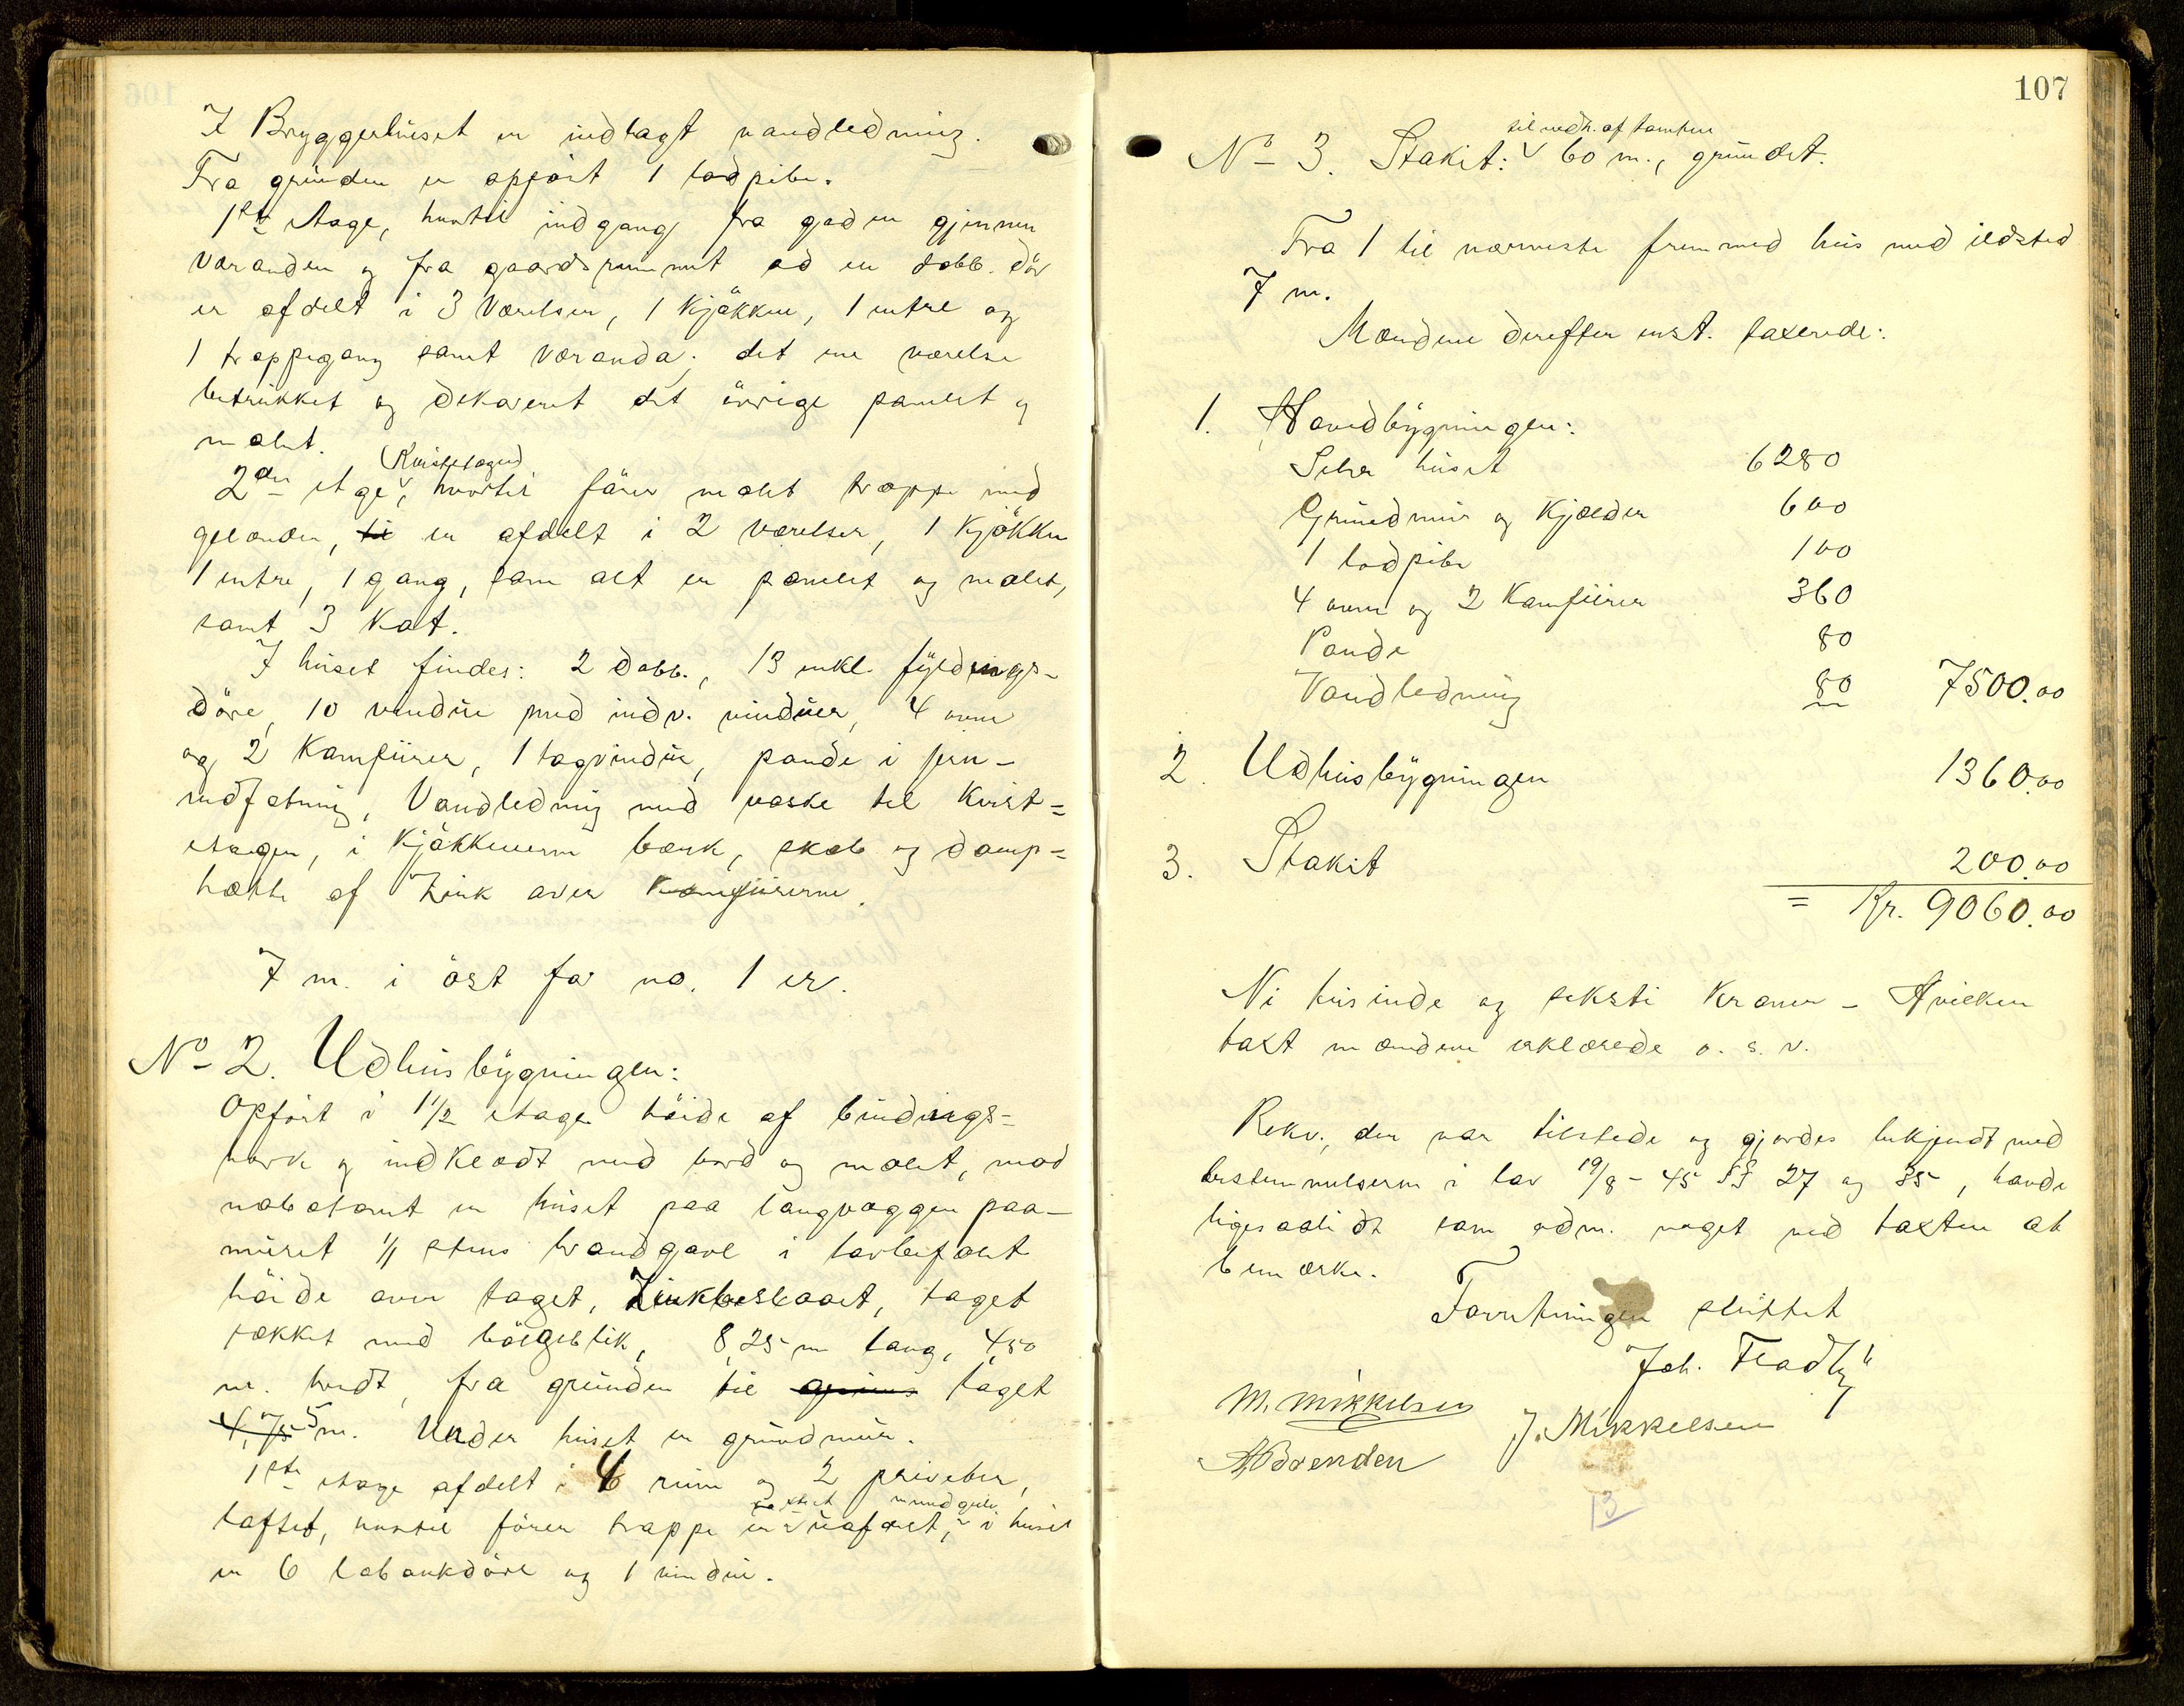 I Bryggerhuset er indlagt vandledning.
Fra grunden er opført 1 lodpibe.
1ste etage, hvortil indgang fra gaden gjennem
veranden og fra gaardsrummet ad en dobb. dør
er afdelt i 3 Værelser, 1 Kjøkken, 1 entre og
1 trappegang samt veranda; det ene værelse
betrukket og dekoreret det øvrige panelet og
malet.
(Kvistetagen)
2den etage, hvortil fører malet trappe med
gelænder, er afdelt i 2 værelser, 1 Kjøkken
1 entre, 1 gang, som alt er panelet og malet,
samt 3 Kot.
I huset findes: 2 dobb., 13 enkl. fyldings-
døre, 10 vinduer med indv. vinduer, 4 ovne
og 2 Komfurer, 1 tagvindu, pande i jern-
indfatning, Vandledning med vaske til Kvist=
etagen, i Kjøkkenerne bænk, skab og damp=
hætte af Zink over Komfurerne.
7 m. i øst for no. 1 er.
No 2. Udhusbygningen:
Opført i 1 1/2 etages høide af bindings=
verk og indklædt med bord og malet, mod
nabotomt er huset paa langvæggen paa-
muret 1/1 stens brandgavl i lovbefalet
høide over taget, Zinkbeslaaet, taget
tækket med bølgeblik, 8,25 m lang, 4,50
m. bredt, fra grunden til gr taget
4,75 5 m. Under huset er grundmur.
1ste etage afdelt i 4 rum og 2 priveter,
loftet, hvortil fører trappe er uafdelt, i huset
er 6 labankdøre og 1 vindu.
107
til vedh. af tomten
No 3. Stakit: 60 m., grundet.
Fra 1 til nærmeste fremmed hus med ildsted
7 m.
Mændene derefter enst. taxerede:
1. Hovedbygningen:
Selve huset 6280
Grundmur og Kjælder 600
1 lodpibe 100
4 ovne og 2 Komfurer 360
Pande 80
Vandledning 80 7500.00
2. Udhusbygningen 1360.00
3. Stakit 200.00
= Kr. 9060.00
Ni tusinde og seksti Kroner - Hvilken
taxt mændene erklærede o. s. v.
Rekv., der var tilstede og gjordes bekjendt med
bestemmelserne i lov 19/8-45 §§ 27 og 35, havde
ligesaalidt som adm. noget ved taxten at
bemærke.
Forretningen sluttet
Joh. Fladby
M. Mikkelsen
J. Mikkelsen
A Brenden
13